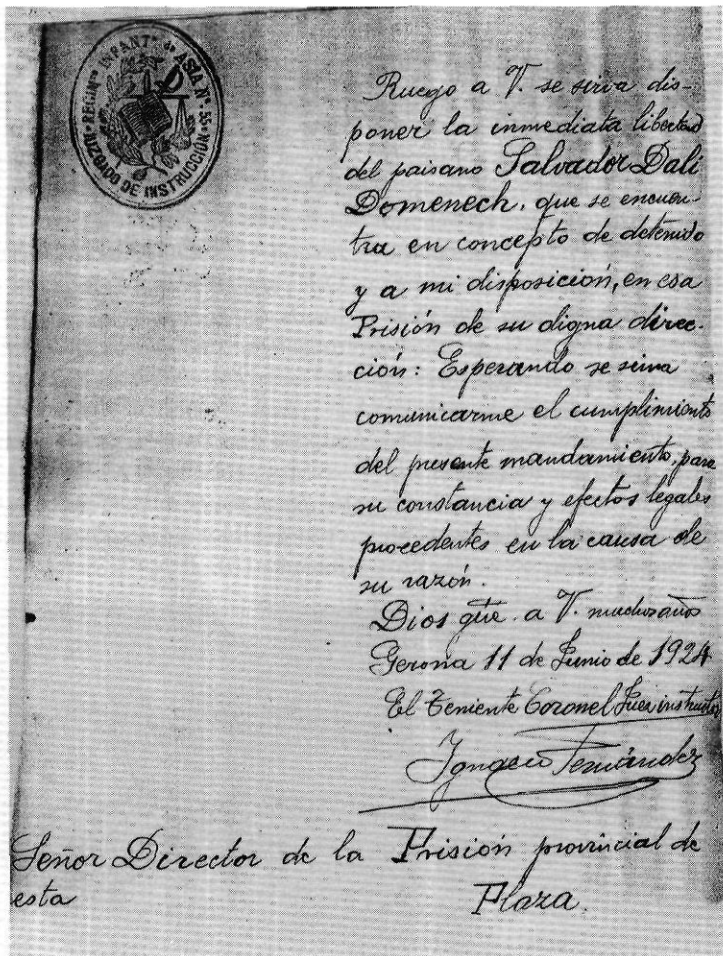 REGIM.to INFANT.a de ASIA N.º 55
JUZGADO DE INSTRUCCIÓN
Ruego a V. se sirva dis-
poner la inmediata libertad
del paisano Salvador Dalí
Domenech, que se encuen-
tra en concepto de detenido
y a mi disposición, en esa
Prisión de su digna direc-
ción: Esperando se sirva
comunicarme el cumplimiento
del presente mandamiento, para
su constancia y efectos legales
procedentes en la causa de
su razón.
Dios gue. a V. muchos años
Gerona 11 de Junio de 1924
El Teniente Coronel Juez instructor
Ignacio Fernández
Señor Director de la Prisión provincial de
esta Plaza.